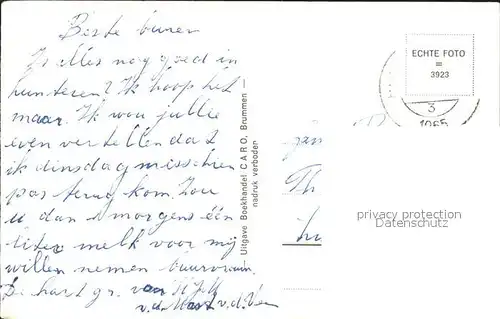 Beste buren
Is alles nog goed in
hunteren? Ik hoop het
maar. Ik wou jullie
even vertellen dat
ik dinsdag misschien
pas terug kom. Zou
u dan smorgens één
liter melk voor mij
willen nemen buurvrouw.
hart gr. van
v.d.
Uitgave Boekhandel CARO, Brummen —
nadruk verboden
ECHTE FOTO
=
3923
3
1965
privacy protection
Datenschutz